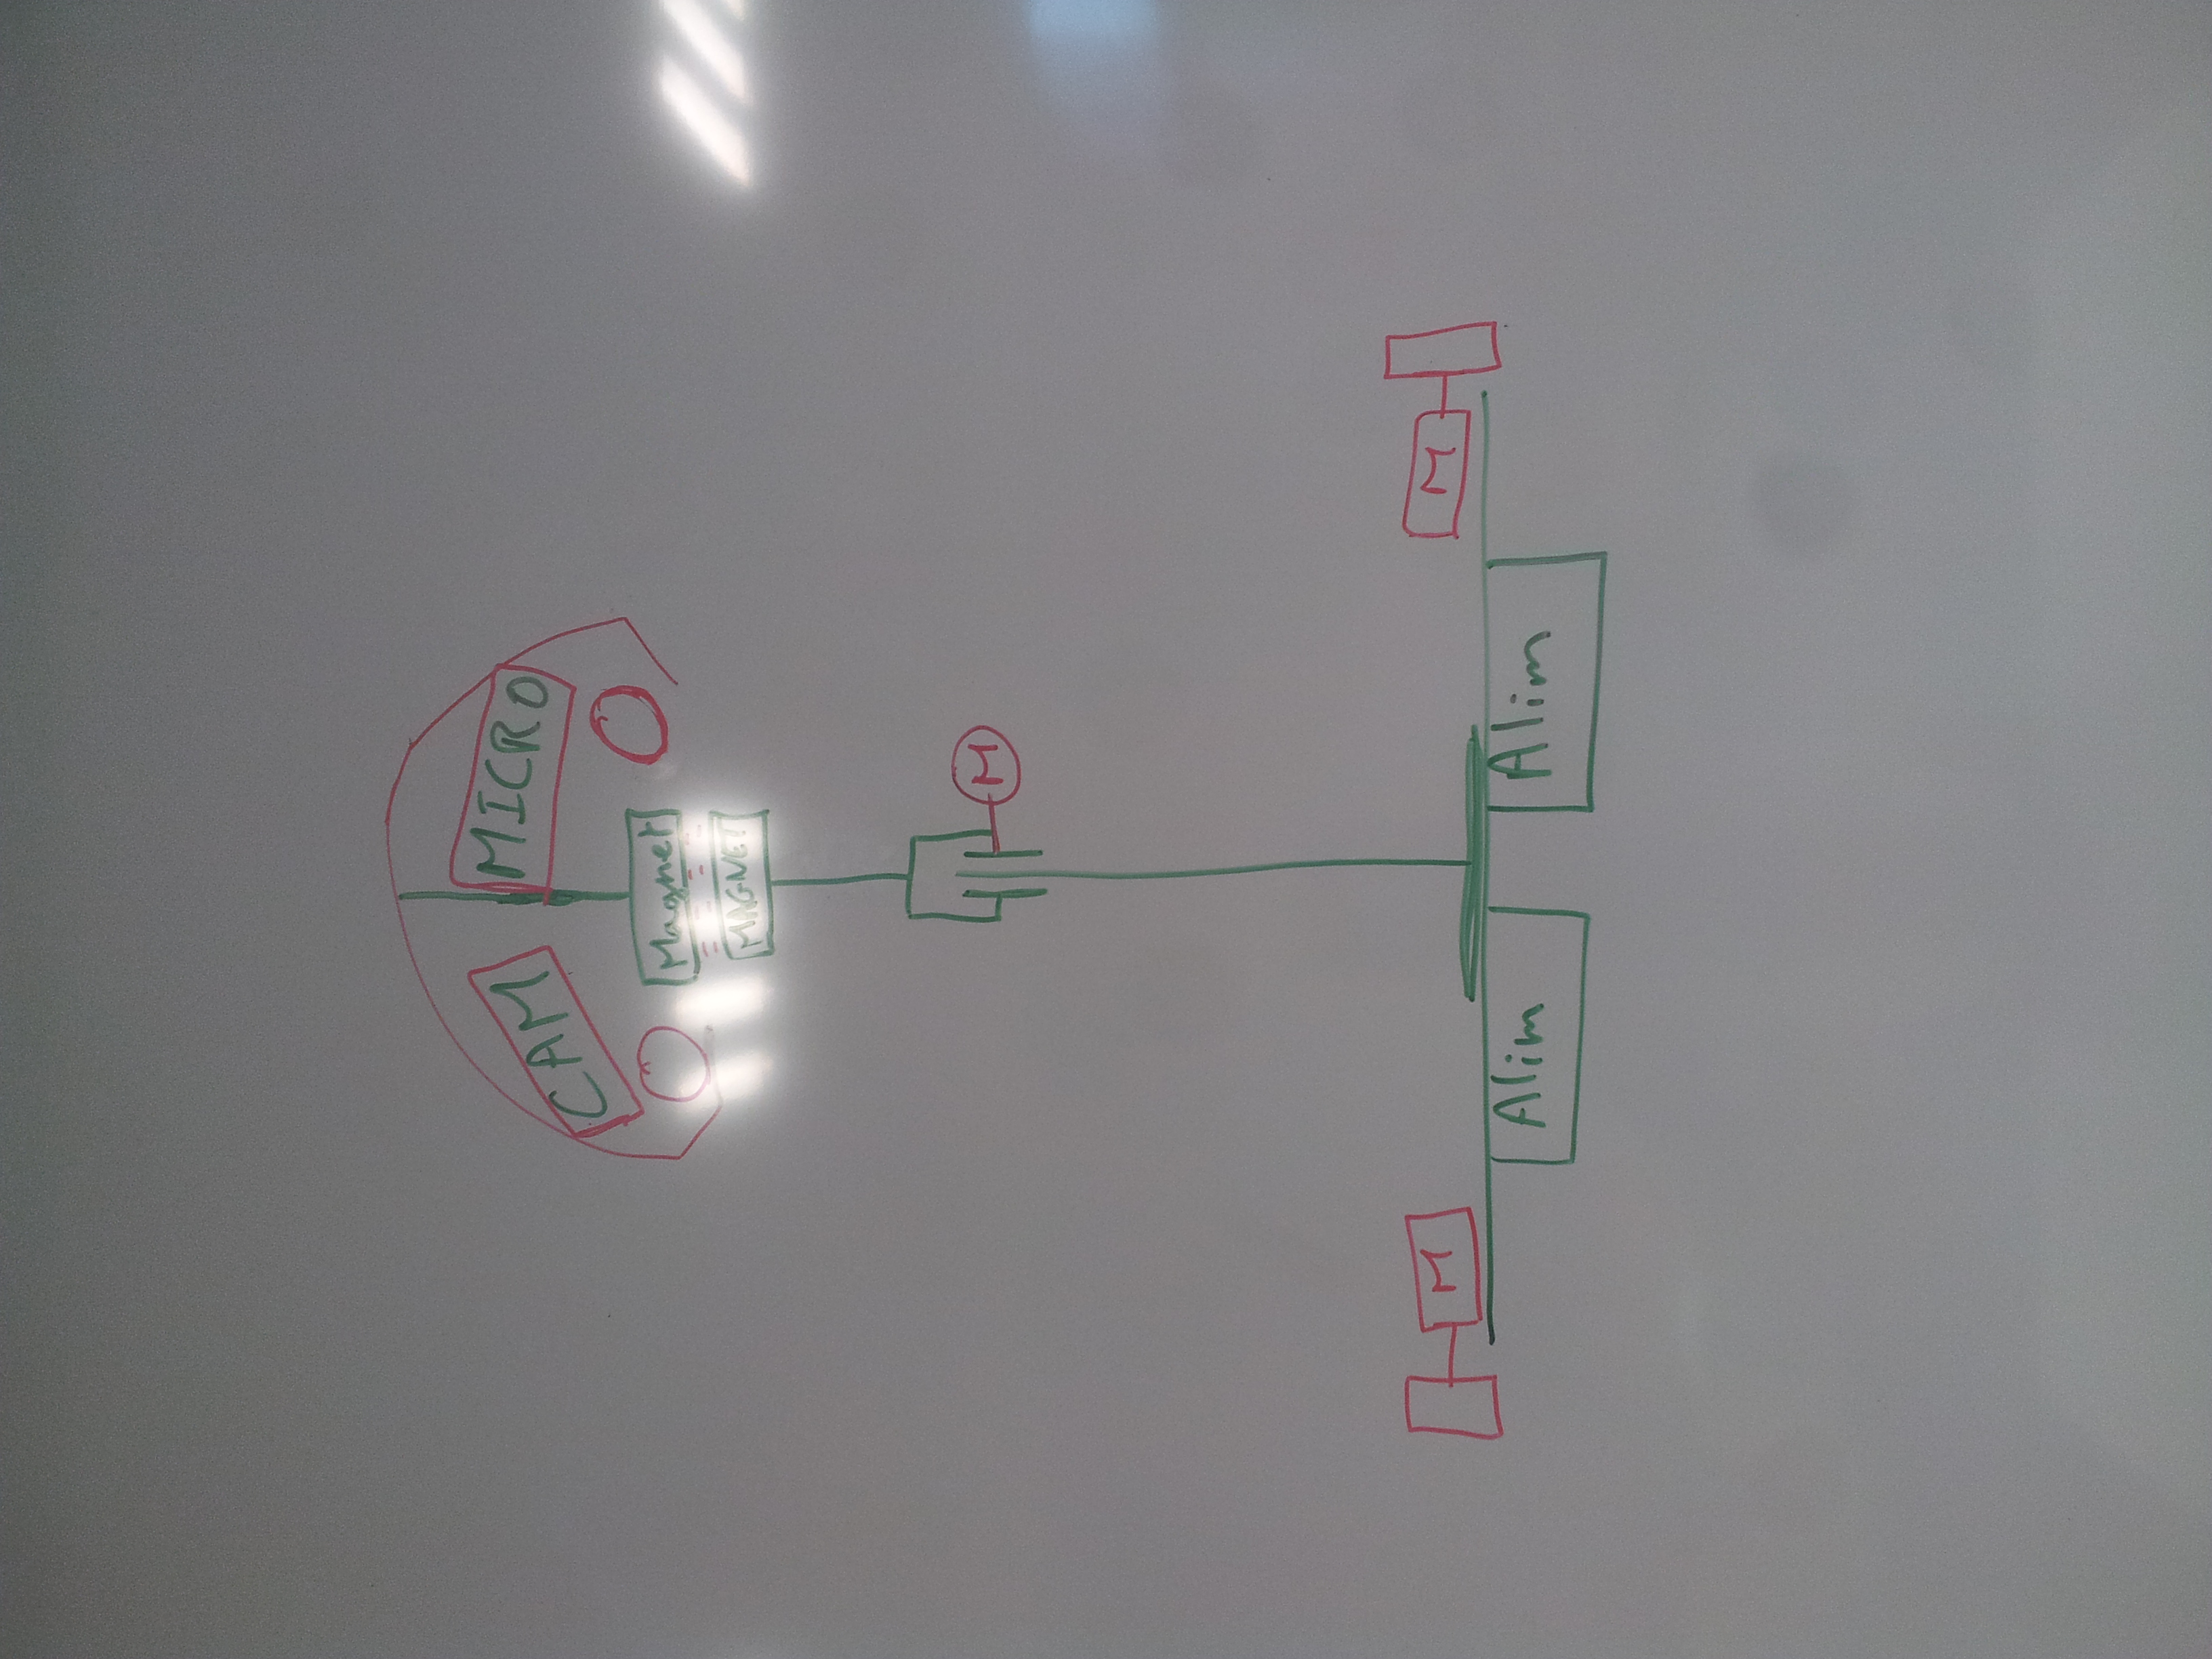 CAM
MICRO
Magnet
MAGNET
M
M
M
Alim
Alim